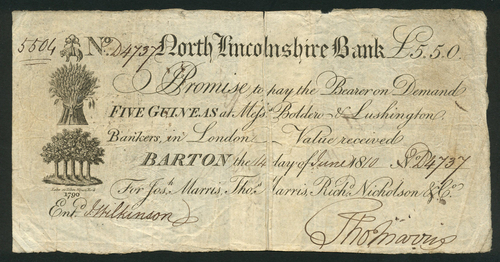 5504 No. D4737 North Lincolnshire Bank £5.5.0.
I Promise to pay the Bearer on Demand
FIVE GUINEAS at Messrs Boldero & Lushington
Bankers, in London Value received
BARTON the 14 day of June 1810 No D4737
For Josh. Marris, Thos. Marris, Richd. Nicholson & Co.
1790
Entd. J Wilkinson Thos Marris